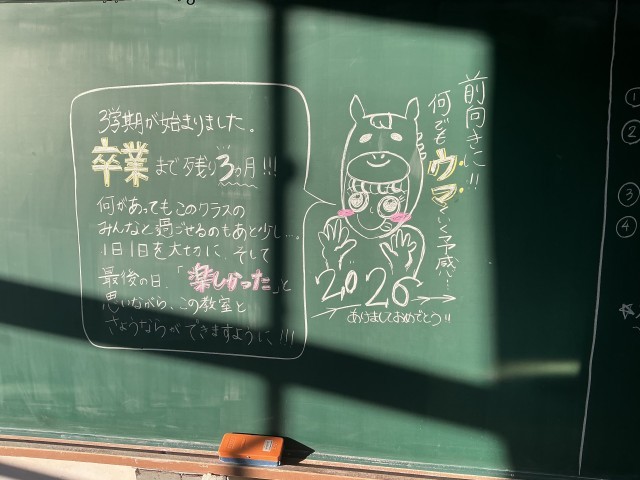 3学期が始まりました。
卒業まで残り3ヶ月!!!
何があってもこのクラスの
みんなと過ごせるのもあと少し…。
1日1日を大切に、そして
最後の日、「楽しかった」と
思いながら、この教室と
さようならができますように!!!
前向きに!!
何でもウマくいく予感…
2026
あけましておめでとう!!
①
②
③
④